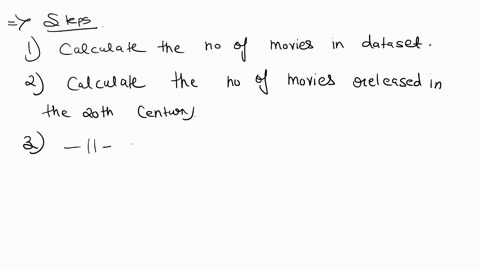 => Steps
1) Calculate the no of movies in dataset.
2) Calculate the no of movies released in
the 20th Century
3) -11-